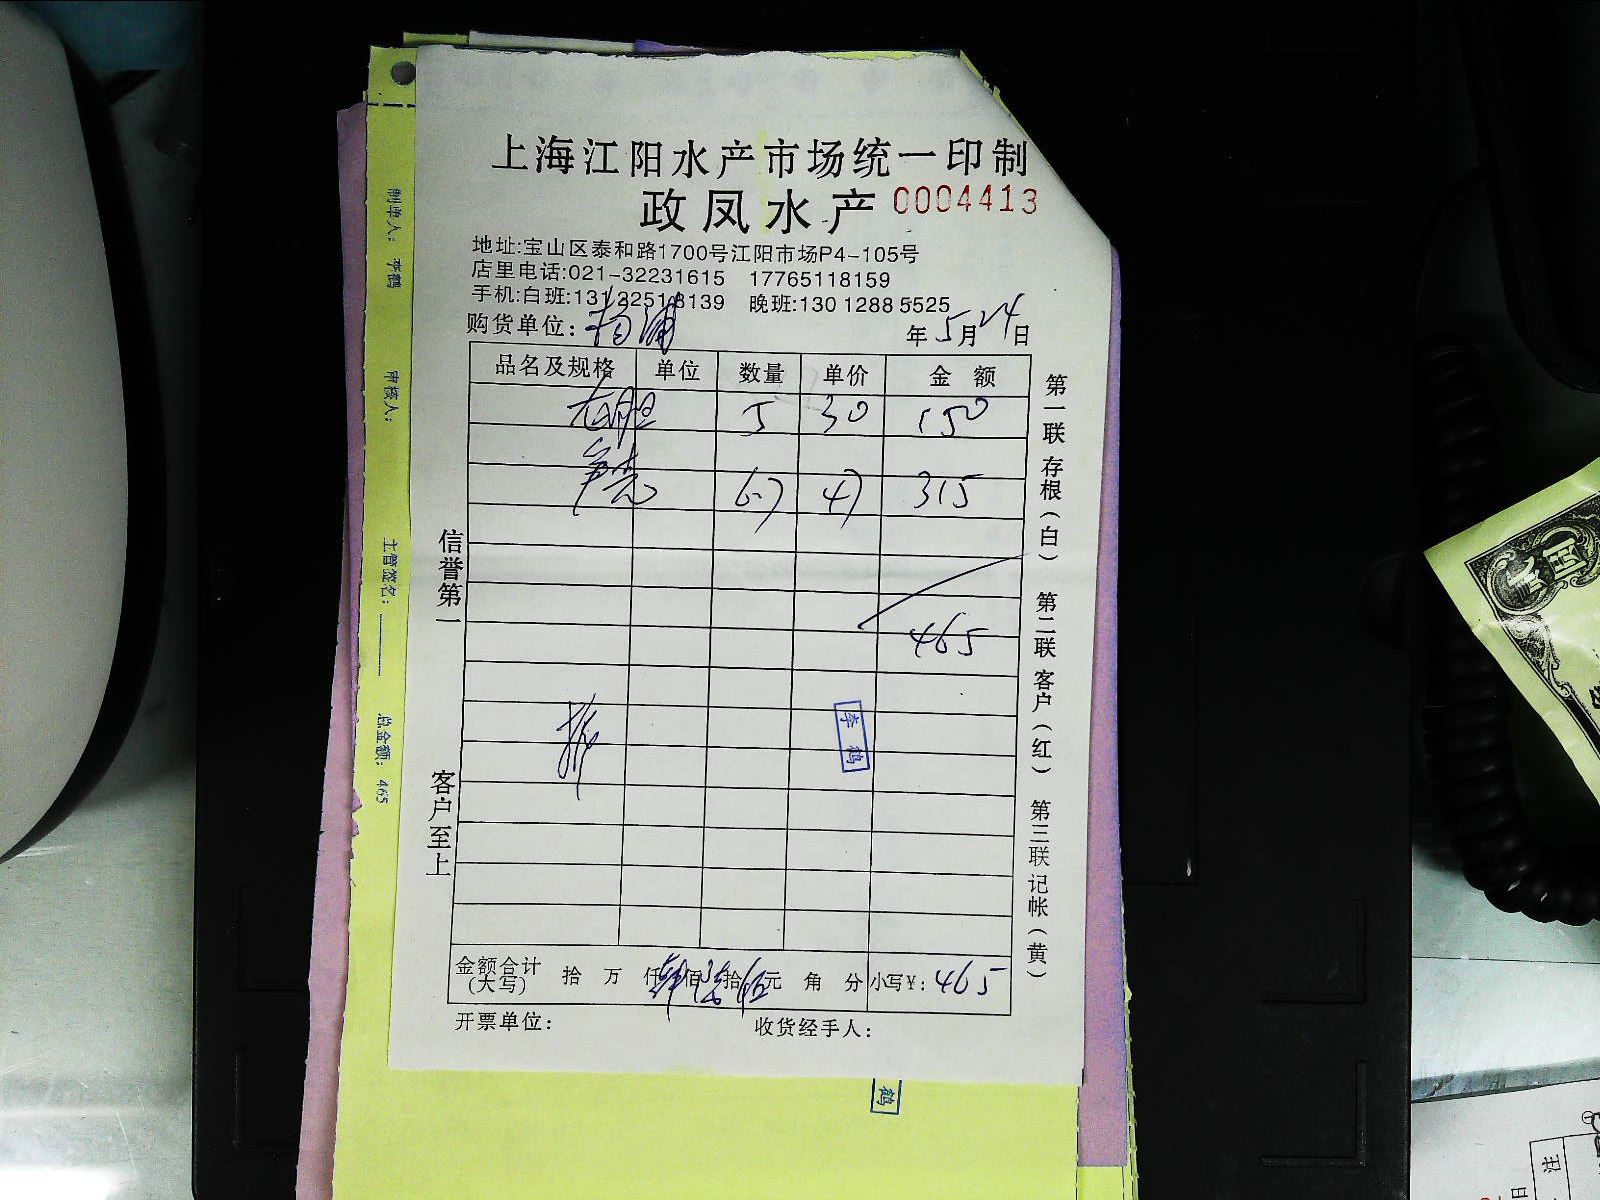 上海江阳水产市场统一印制
政凤水产 0004413
地址:宝山区泰和路1700号江阳市场P4-105号
店里电话:021-32231615 17765118159
手机:白班:13122518139 晚班:130 1288 5525
购货单位: 杨浦 年 5 月 24 日
品名及规格 单位 数量 单价 金 额
5 30 150
6.7 47 315
465
李鹤
金额合计(大写) 拾 万 仟 肆 佰 陆 拾 伍 元 角 分 小写¥: 465
开票单位: 收货经手人:
信誉第一
客户至上
第一联 存根(白) 第二联 客户(红) 第三联 记帐(黄)
制单人: 李鹤 审核人: 主管签名: 总金额: 465
鹤
注
日